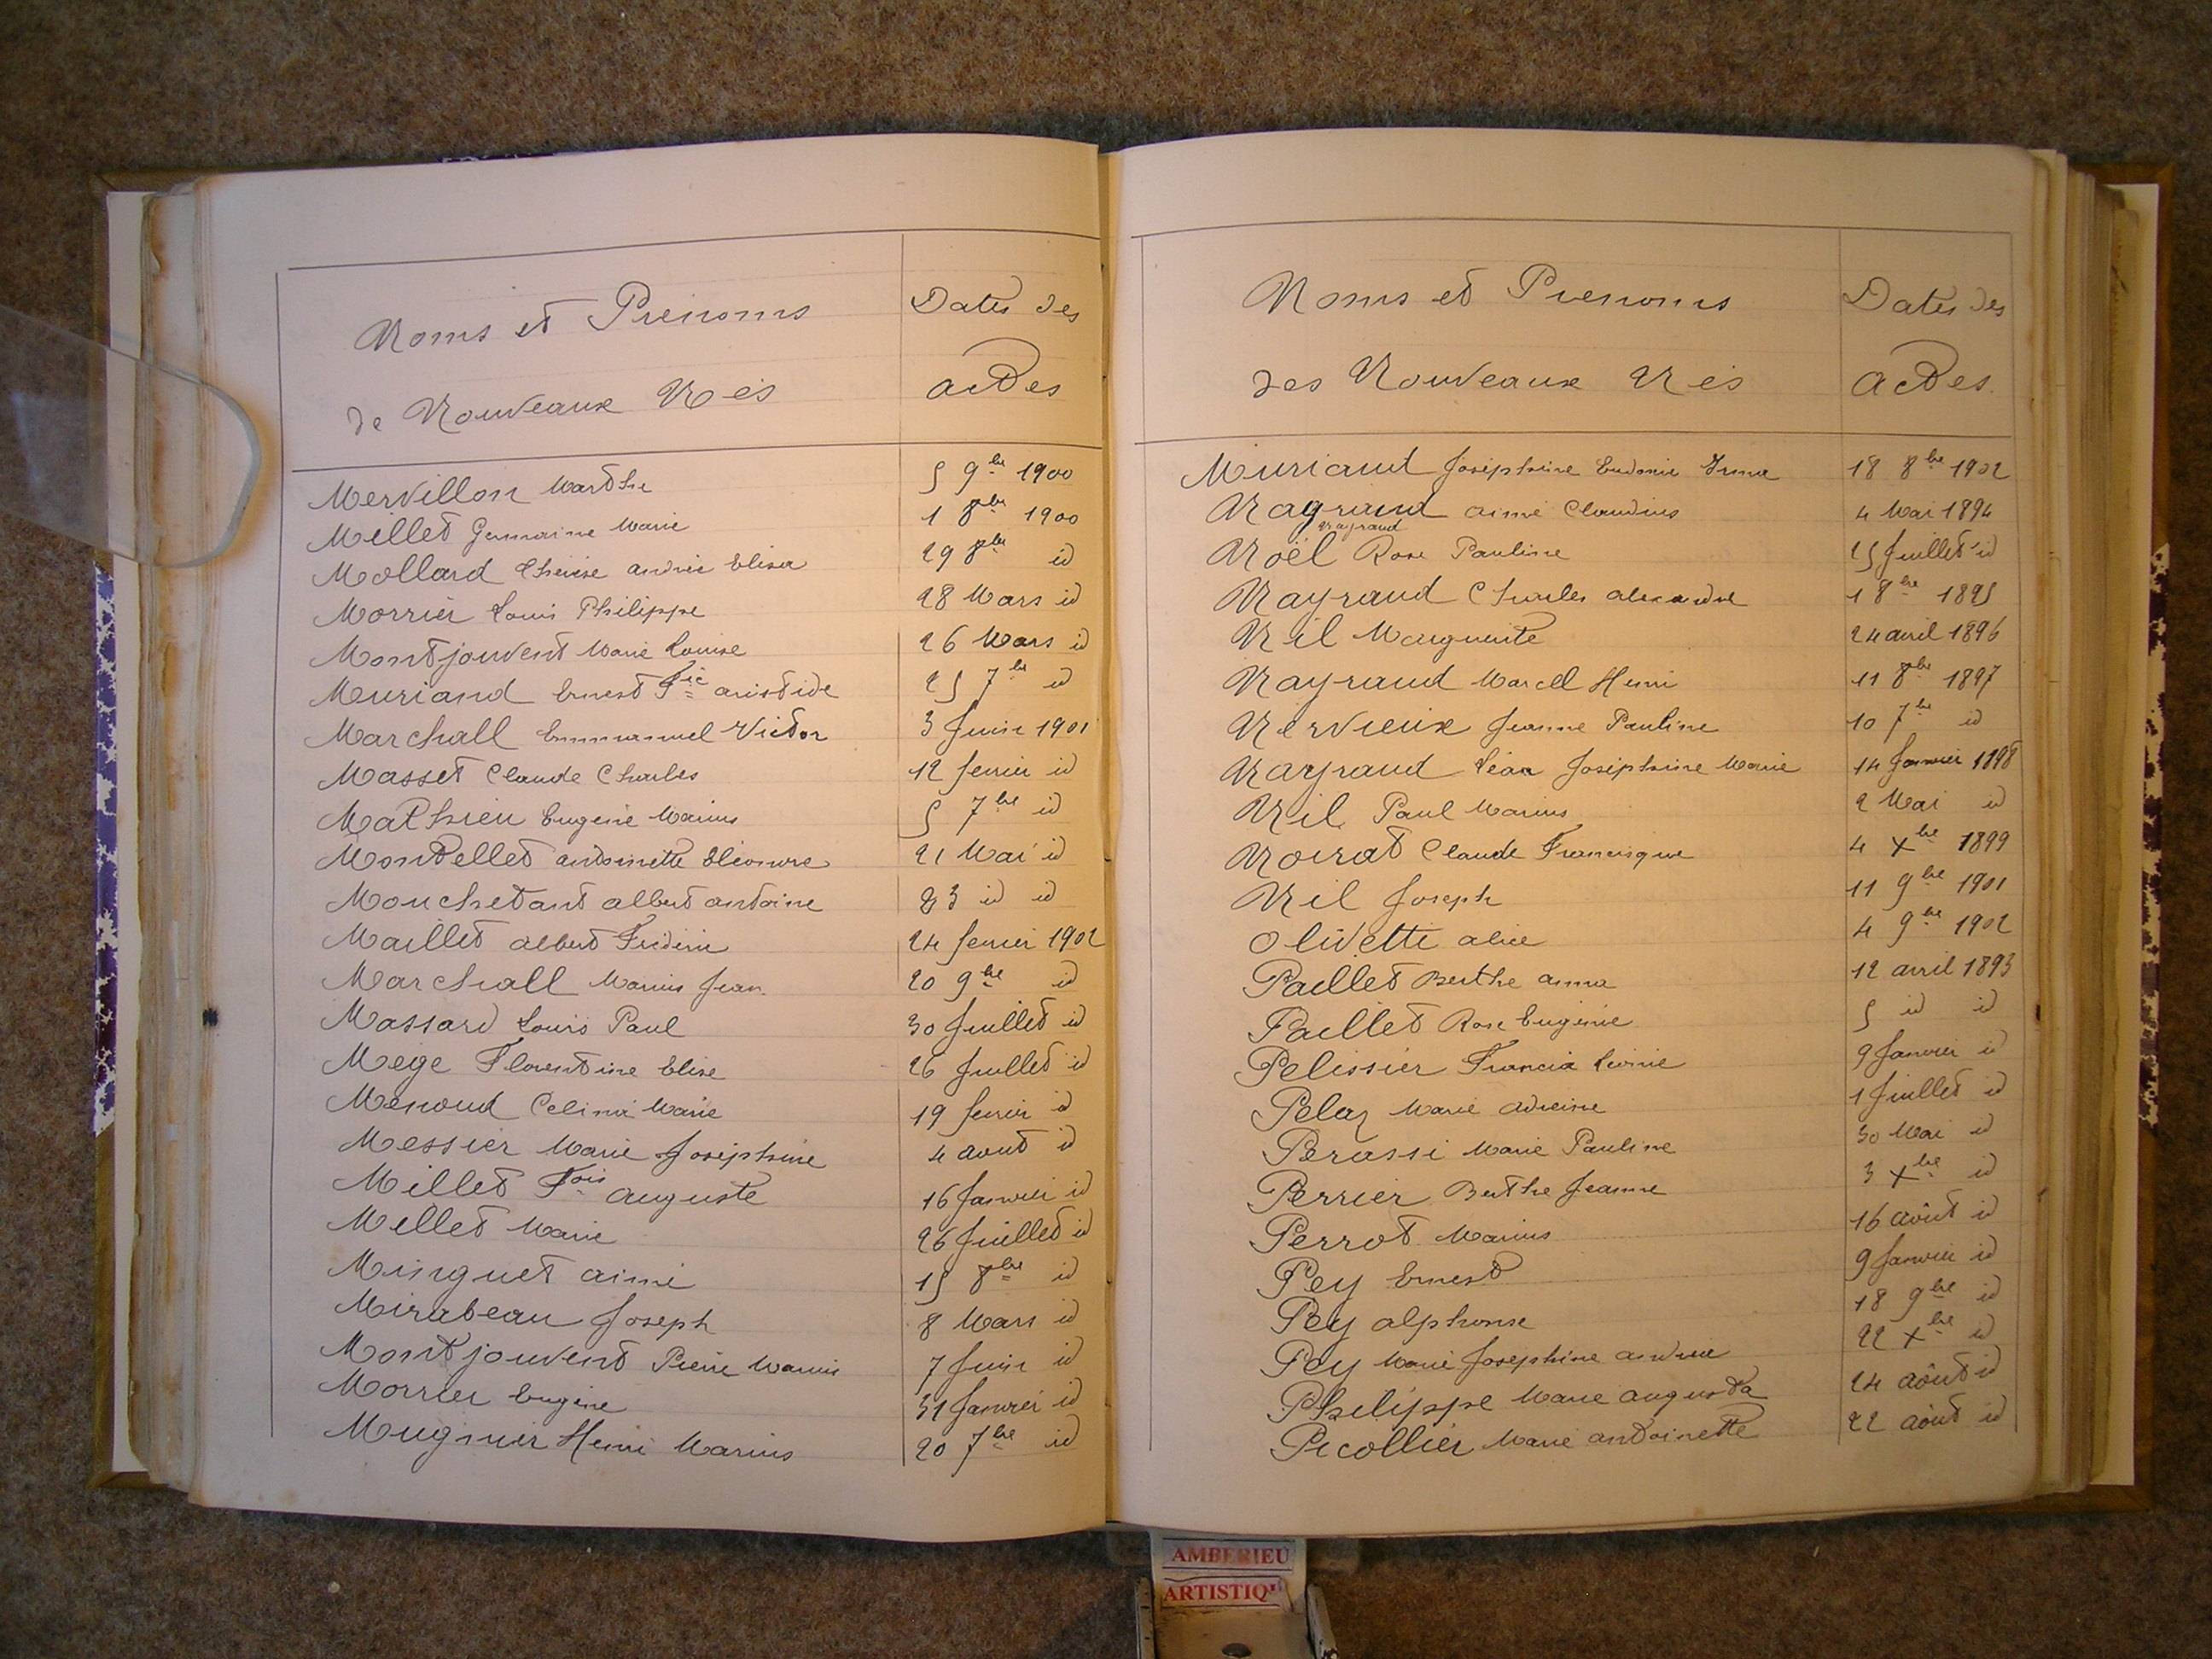 Noms et Prénoms
Dates des
de Nouveaux Nés
actes
Mervillon Marthe 5 9bre 1900
Millet Germaine Marie 1 8bre 1900
Mollard Thérèse Andrée Elisa 29 8bre id
Morrier Louis Philippe 28 Mars id
Montjouvent Marie Louise 26 Mars id
Muriand Ernest Fic aristide 25 7bre id
Marchall Emmanuel Victor 3 Juin 1901
Masset Claude Charles 12 fevrier id
Mathieu Eugène Marius 5 7bre id
Montellet antoinette Eléonore 21 Mai id
Mouchetant albert antoine 23 id id
Maillet albert Frédéric 24 fevrier 1902
Marchall Marius Jean 20 9bre id
Massard Louis Paul 30 Juillet id
Mege Florentine Elise 26 Juillet id
Menoud Celima Marie 19 fevrier id
Messier Marie Joséphine 4 aout id
Millet Fois auguste 16 Janvier id
Millet Marie 26 Juillet id
Minguet aimé 15 8bre id
Mirabeau Joseph 8 Mars id
Montjouvent Pierre Marius 7 Juin id
Morrier Eugène 31 Janvier id
Mugnier Henri Marius 20 7bre id
Noms et Prenoms
Dates des
des Nouveaux Nés
actes.
Muriaud Joséphine Eudoxie Irma 18 8bre 1902
Nagraud aimé Claudius 4 Mai 1894
Nayraud
Noël Rose Pauline 25 Juillet id
Nayraud Charles alexandre 1 8bre 1895
Nil Marguerite 24 avril 1896
Nayraud Marcel Henri 11 8bre 1897
Nervieux Jeanne Pauline 10 7bre id
Nayraud Léa Joséphine Marie 14 Janvier 1898
Nil Paul Marius 2 Mai id
Noirat Claude Francisque 4 Xbre 1899
Nil Joseph 11 9bre 1901
Olivetti alice 4 9bre 1902
Paillet Berthe anna 12 avril 1893
Paillet Rose Eugénie 5 id id
Pelissier Francia Léonie 9 Janvier id
Pelaz Marie 1 Juillet id
Perassi Marie Pauline 30 Mai id
Perrier Berthe Jeanne 3 Xbre id
Perrot Marius 16 août id
Pey Ernest 9 Janvier id
Pey alphonse 18 9bre id
Pey Marie Josephine andrée 22 Xbre id
Philippe Marie augusta 24 août id
Picollier Marie antoinette 22 août id
AMBERIEU
ARTISTIQU